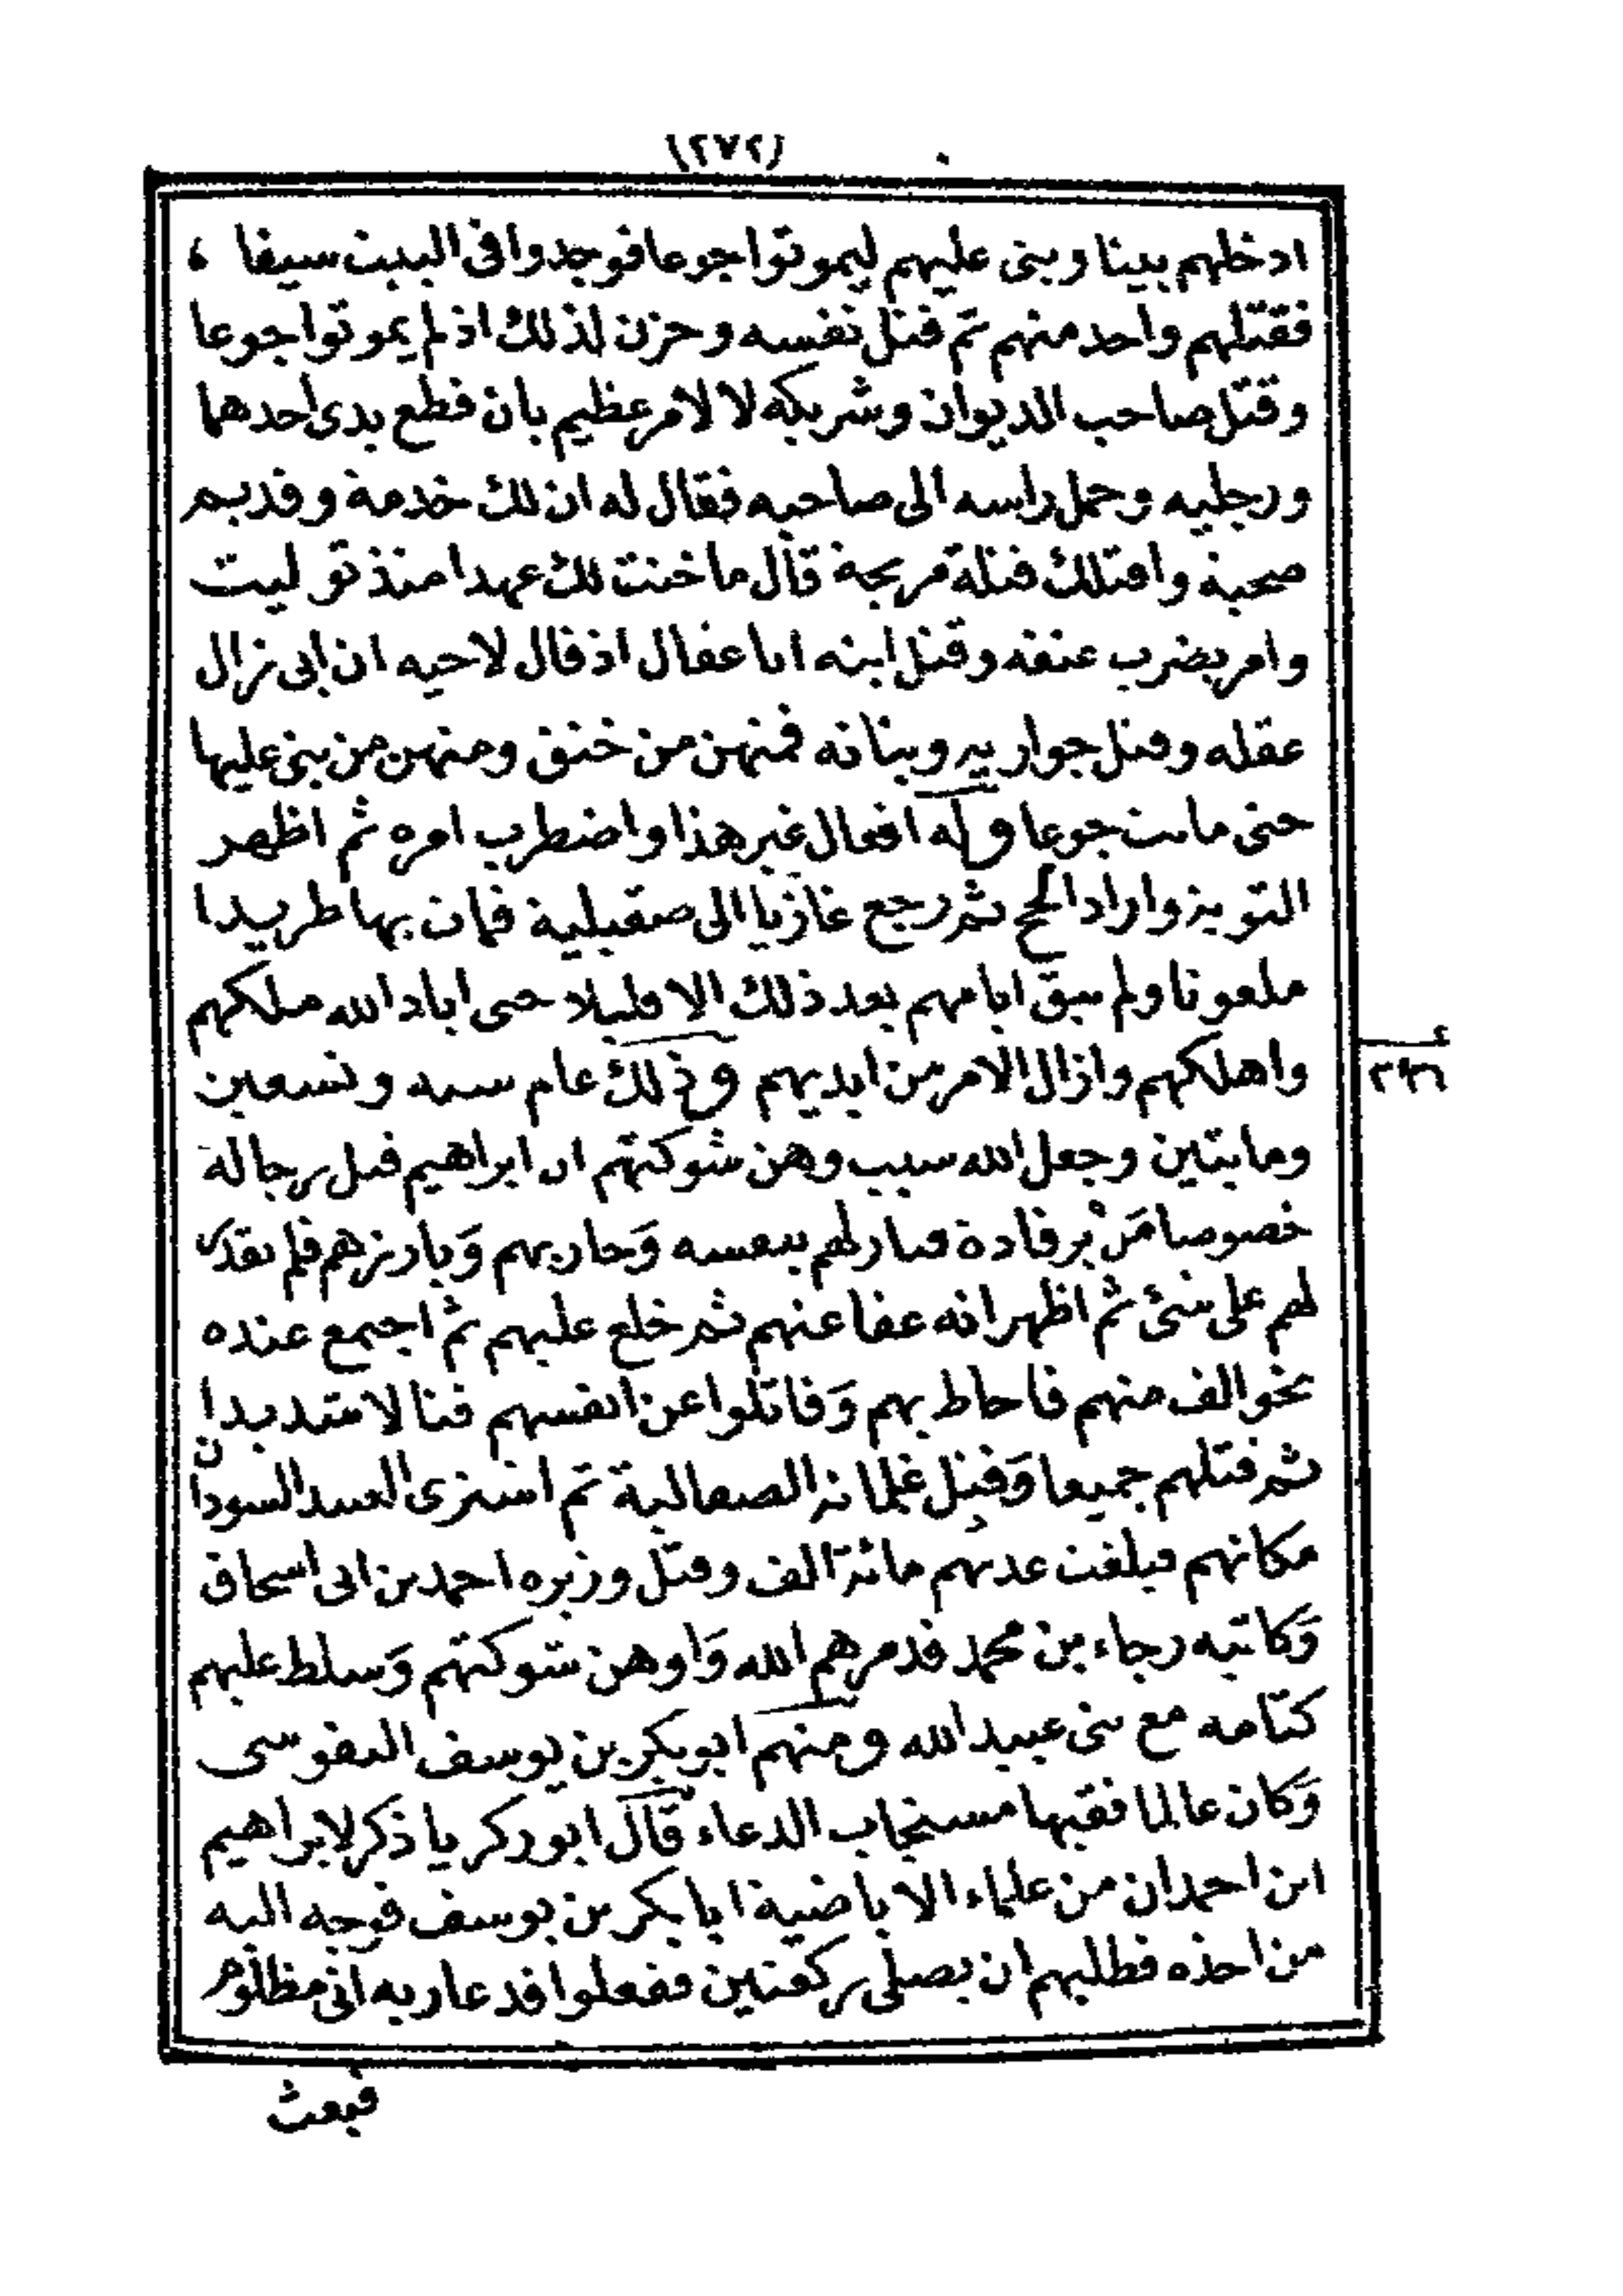 (٢٧٢)
ادخلهم بيتا وبنى عليهم ليموتوا جوعا فوجدوا فى البيت سيفا ،
فقتلهم واحد منهم ثم قتل نفسه وحزن لذلك اذ لم يموتوا جوعا
وقتل صاحب الديوان وشريكه لا لامر عظيم بان قطع يدى احدهما
ورجليه وحمل راسه الى صاحبه فقال له ان لك خدمة وقديم
صحبة واقتلك قتلة مريحة قال ما خنت لك عهدا منذ توليت
وامر بضرب عنقه وقتل ابنه ابا عقال اذ قال لاخيه ان ابى زال
عقله وقتل جواريه وبناته فمنهن من خنق ومنهن من بنى عليها
حتى ماتت جوعا وله افعال غير هذا واضطرب امره ثم اظهر
التوبة واراد الحج ثم رجع غازيا الى صقيلية فمات بها طريدا
ملعونا ولم تبق ايامهم بعد ذلك الا قليلا حتى اباد الله ملكهم
واهلكهم وازال الامر من ايديهم وذلك عام ستة وتسعين
ومايتين وجعل الله سبب وهن شوكتهم ان ابراهيم قتل رجاله
خصوصا مَنْ برقادة فبارلهم بنفسه وَحاربهم وَبارزهم فلم يقدر
لهم على شئ ثم اظهر انه عفا عنهم ثم خلع عليهم ثم اجتمع عنده
نحو الف منهم فاحاط بهم وَقاتلوا عن انفسهم قتالا شديدا
ثم قتلهم جميعا وَقتل غلمانه الصقالبة ثم اشترى العبيد السودان
مكانهم فبلغت عدتهم مائة الف وقتل وزيره احمد بن ابى اسحاق
وَكاتبه رجاء بن محمد فدمرهم الله وَاوهن شوكتهم وَسلط عليهم
كتامه مع بنى عبيد الله ومنهم ابو بكر بن يوسف النفوسى
وَكان عالما فقيها مستجاب الدعاء قال ابو زكريا ذكر لابراهيم
ابن احمد ان من علماء الاباضية ابا بكر بن يوسف فوجه اليه
من اخذه فطلبهم ان يصلى ركعتين ففعلوا فدعا ربه انى مظلوم
فبعث